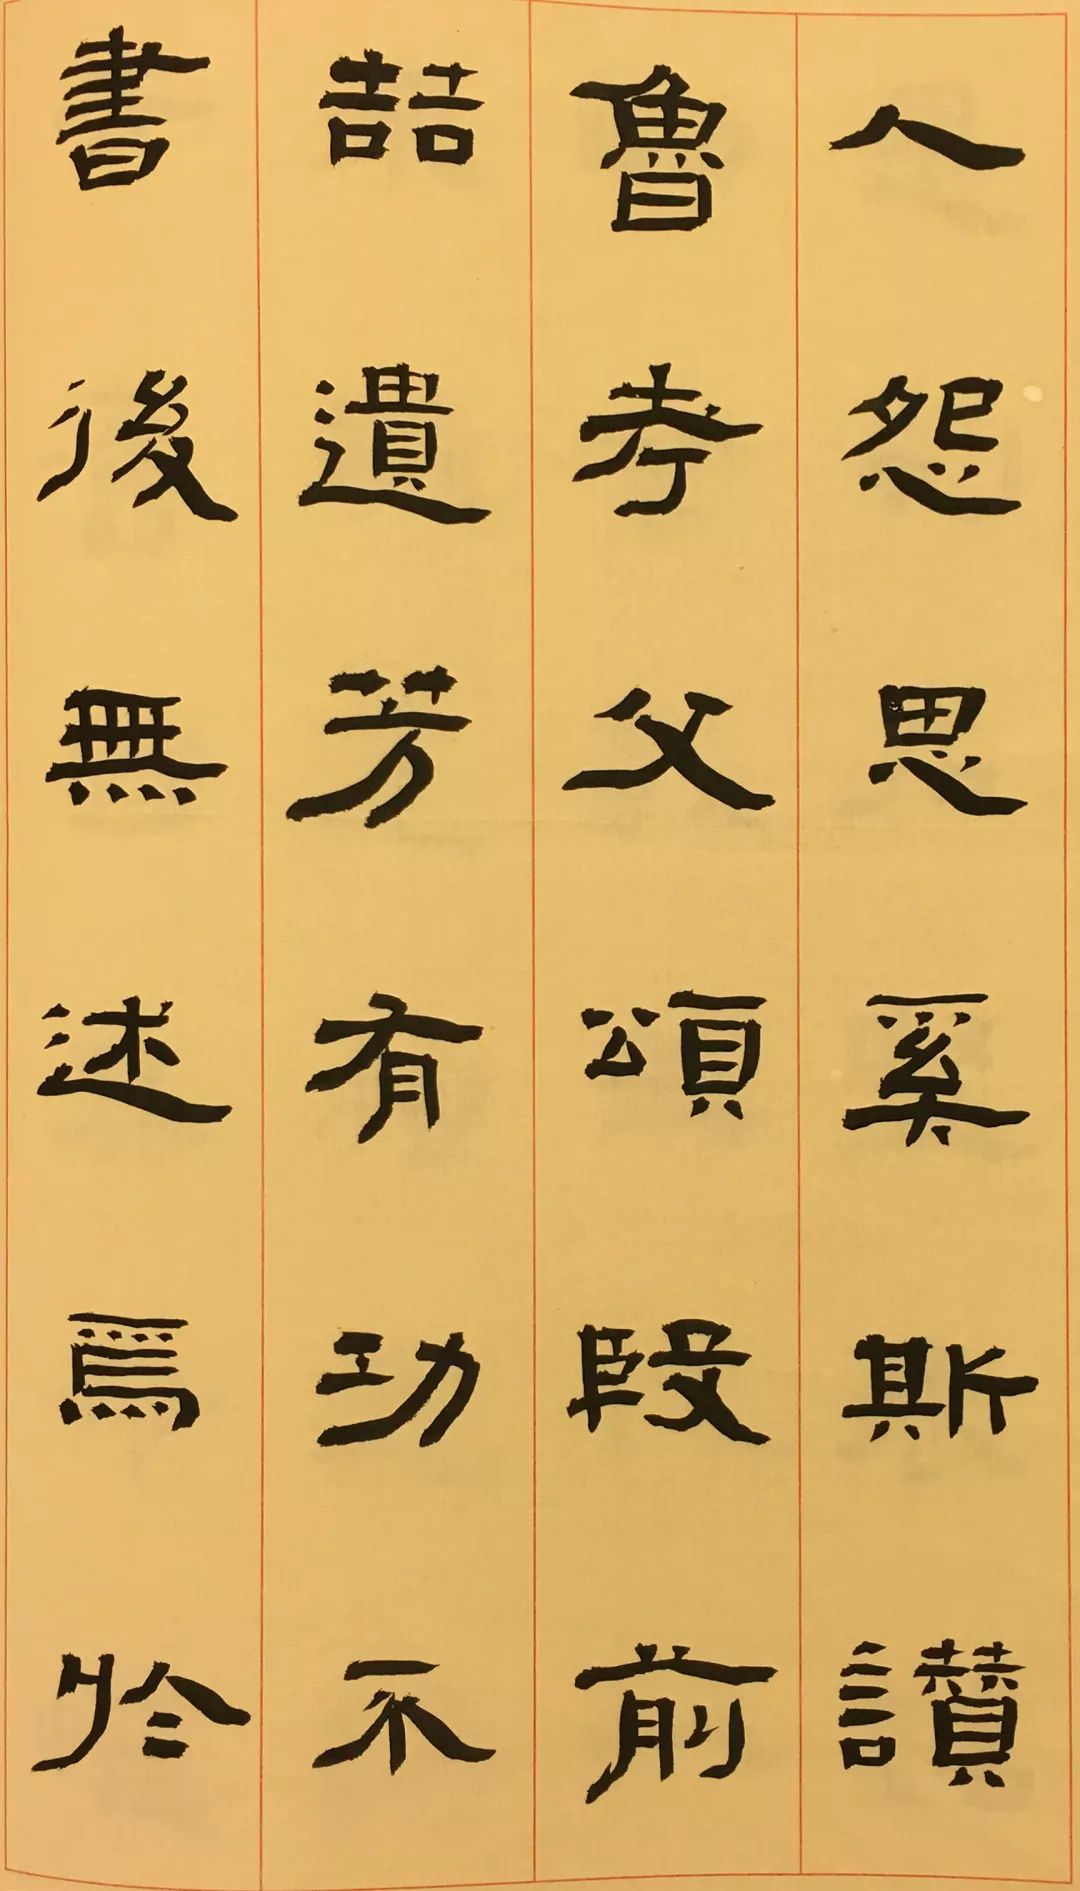 人怨思奚斯讚
魯考父頌殷前
喆遺芳有功不
書後無述焉於